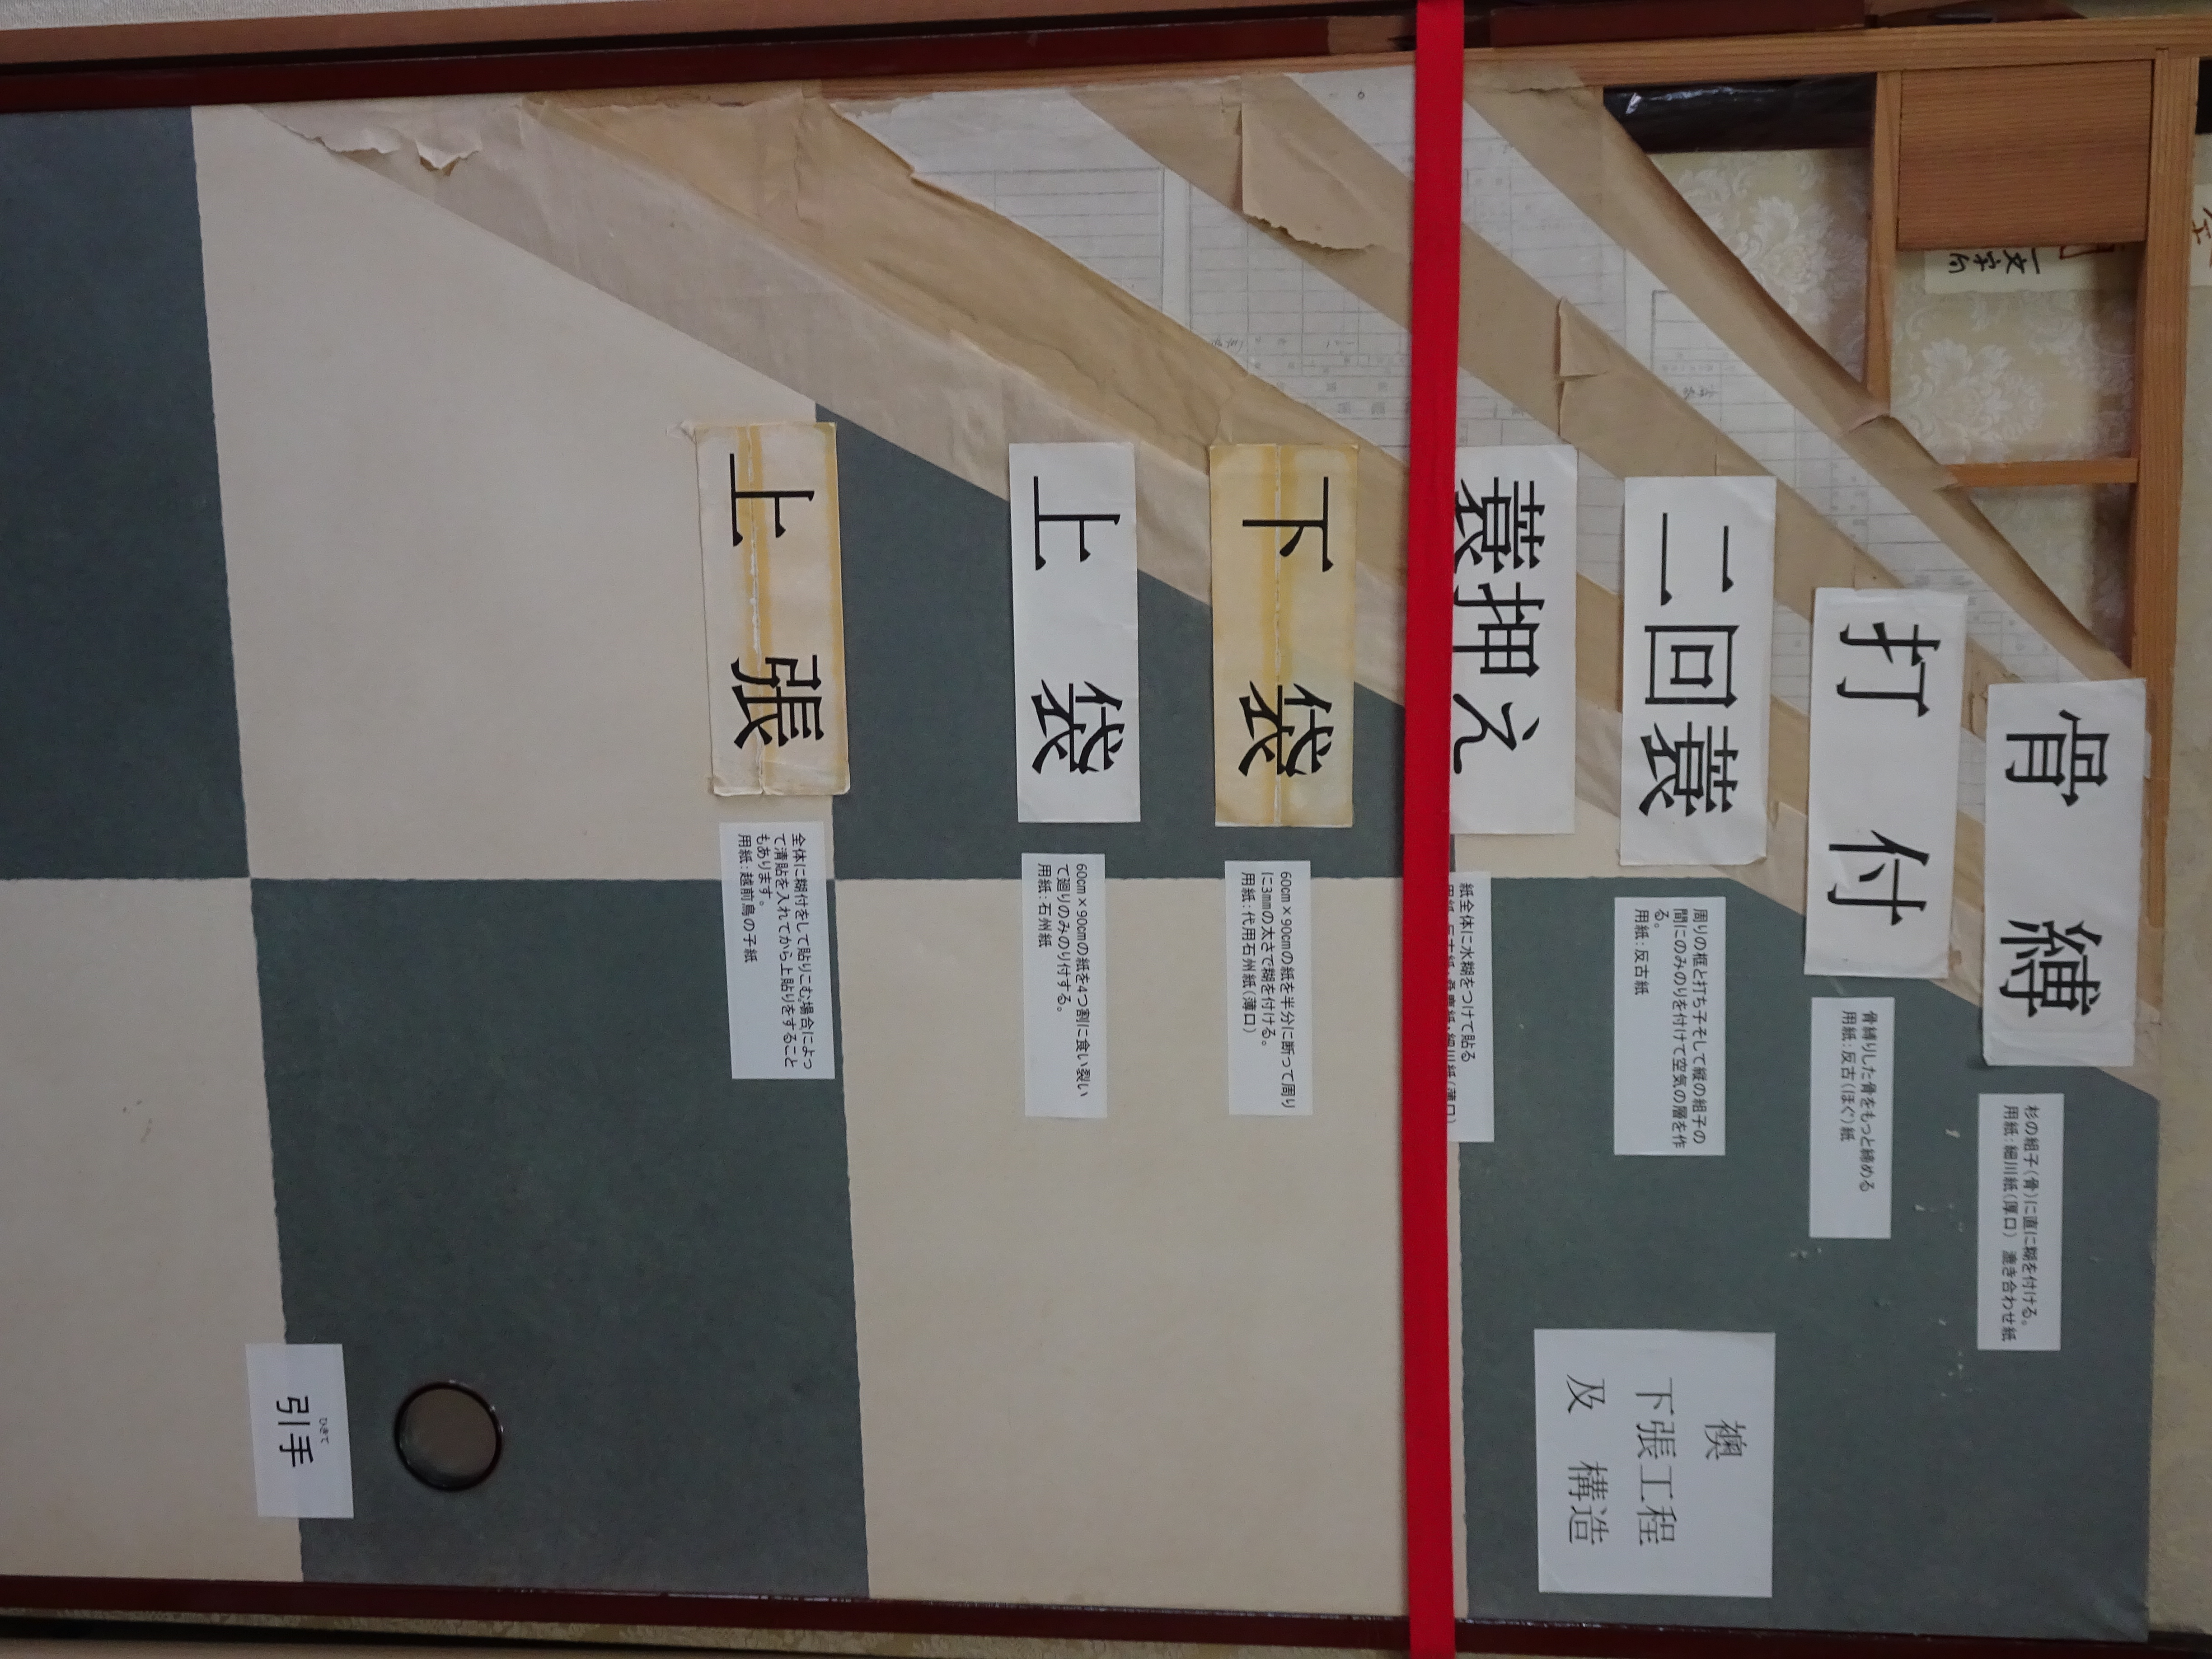 骨縛
杉の組子(骨)に直に糊を付ける。
用紙:細川紙(厚口) 漉き合わせ紙
打付
骨縛りした骨をもっと締める
用紙:反古(ほぐ)紙
二回蓑
周りの框と打ち子そして縦の組子の
間にのみのりを付けて空気の層を作
る。
用紙:反古紙
蓑押え
紙全体に水糊をつけて貼る
下袋
60cm×90cmの紙を半分に断って周り
に3mmの太さで糊を付ける。
用紙:代用石州紙(薄口)
上袋
60cm×90cmの紙を4つ割に食い裂い
て廻りのみのり付する。
用紙:石州紙
上張
全体に糊付をして貼りこむ場合によっ
て清貼を入れてから上貼りをすること
もあります。
用紙:越前鳥の子紙
襖
下張工程
及 構造
ひきて
引手